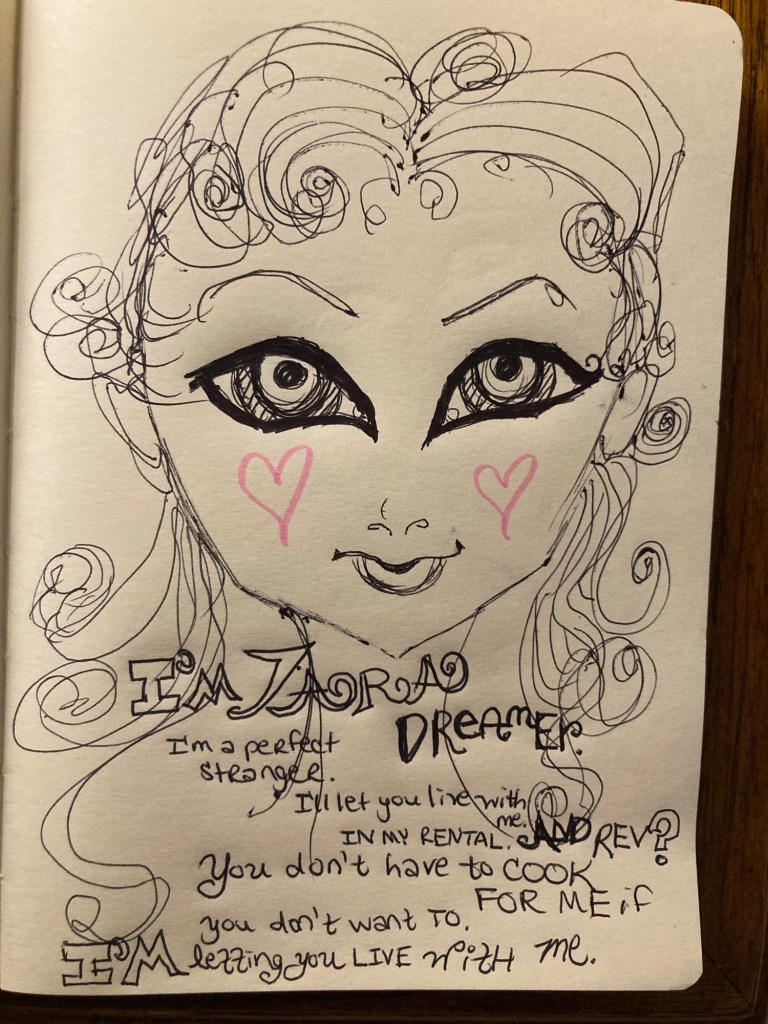 I'M TARA
DREAMER.
I'm a perfect
stranger.
I'll let you live with
me.
IN MY RENTAL. AND REV?
You don't have to COOK
FOR ME if
you don't want TO.
I'M letting you LIVE WITH me.